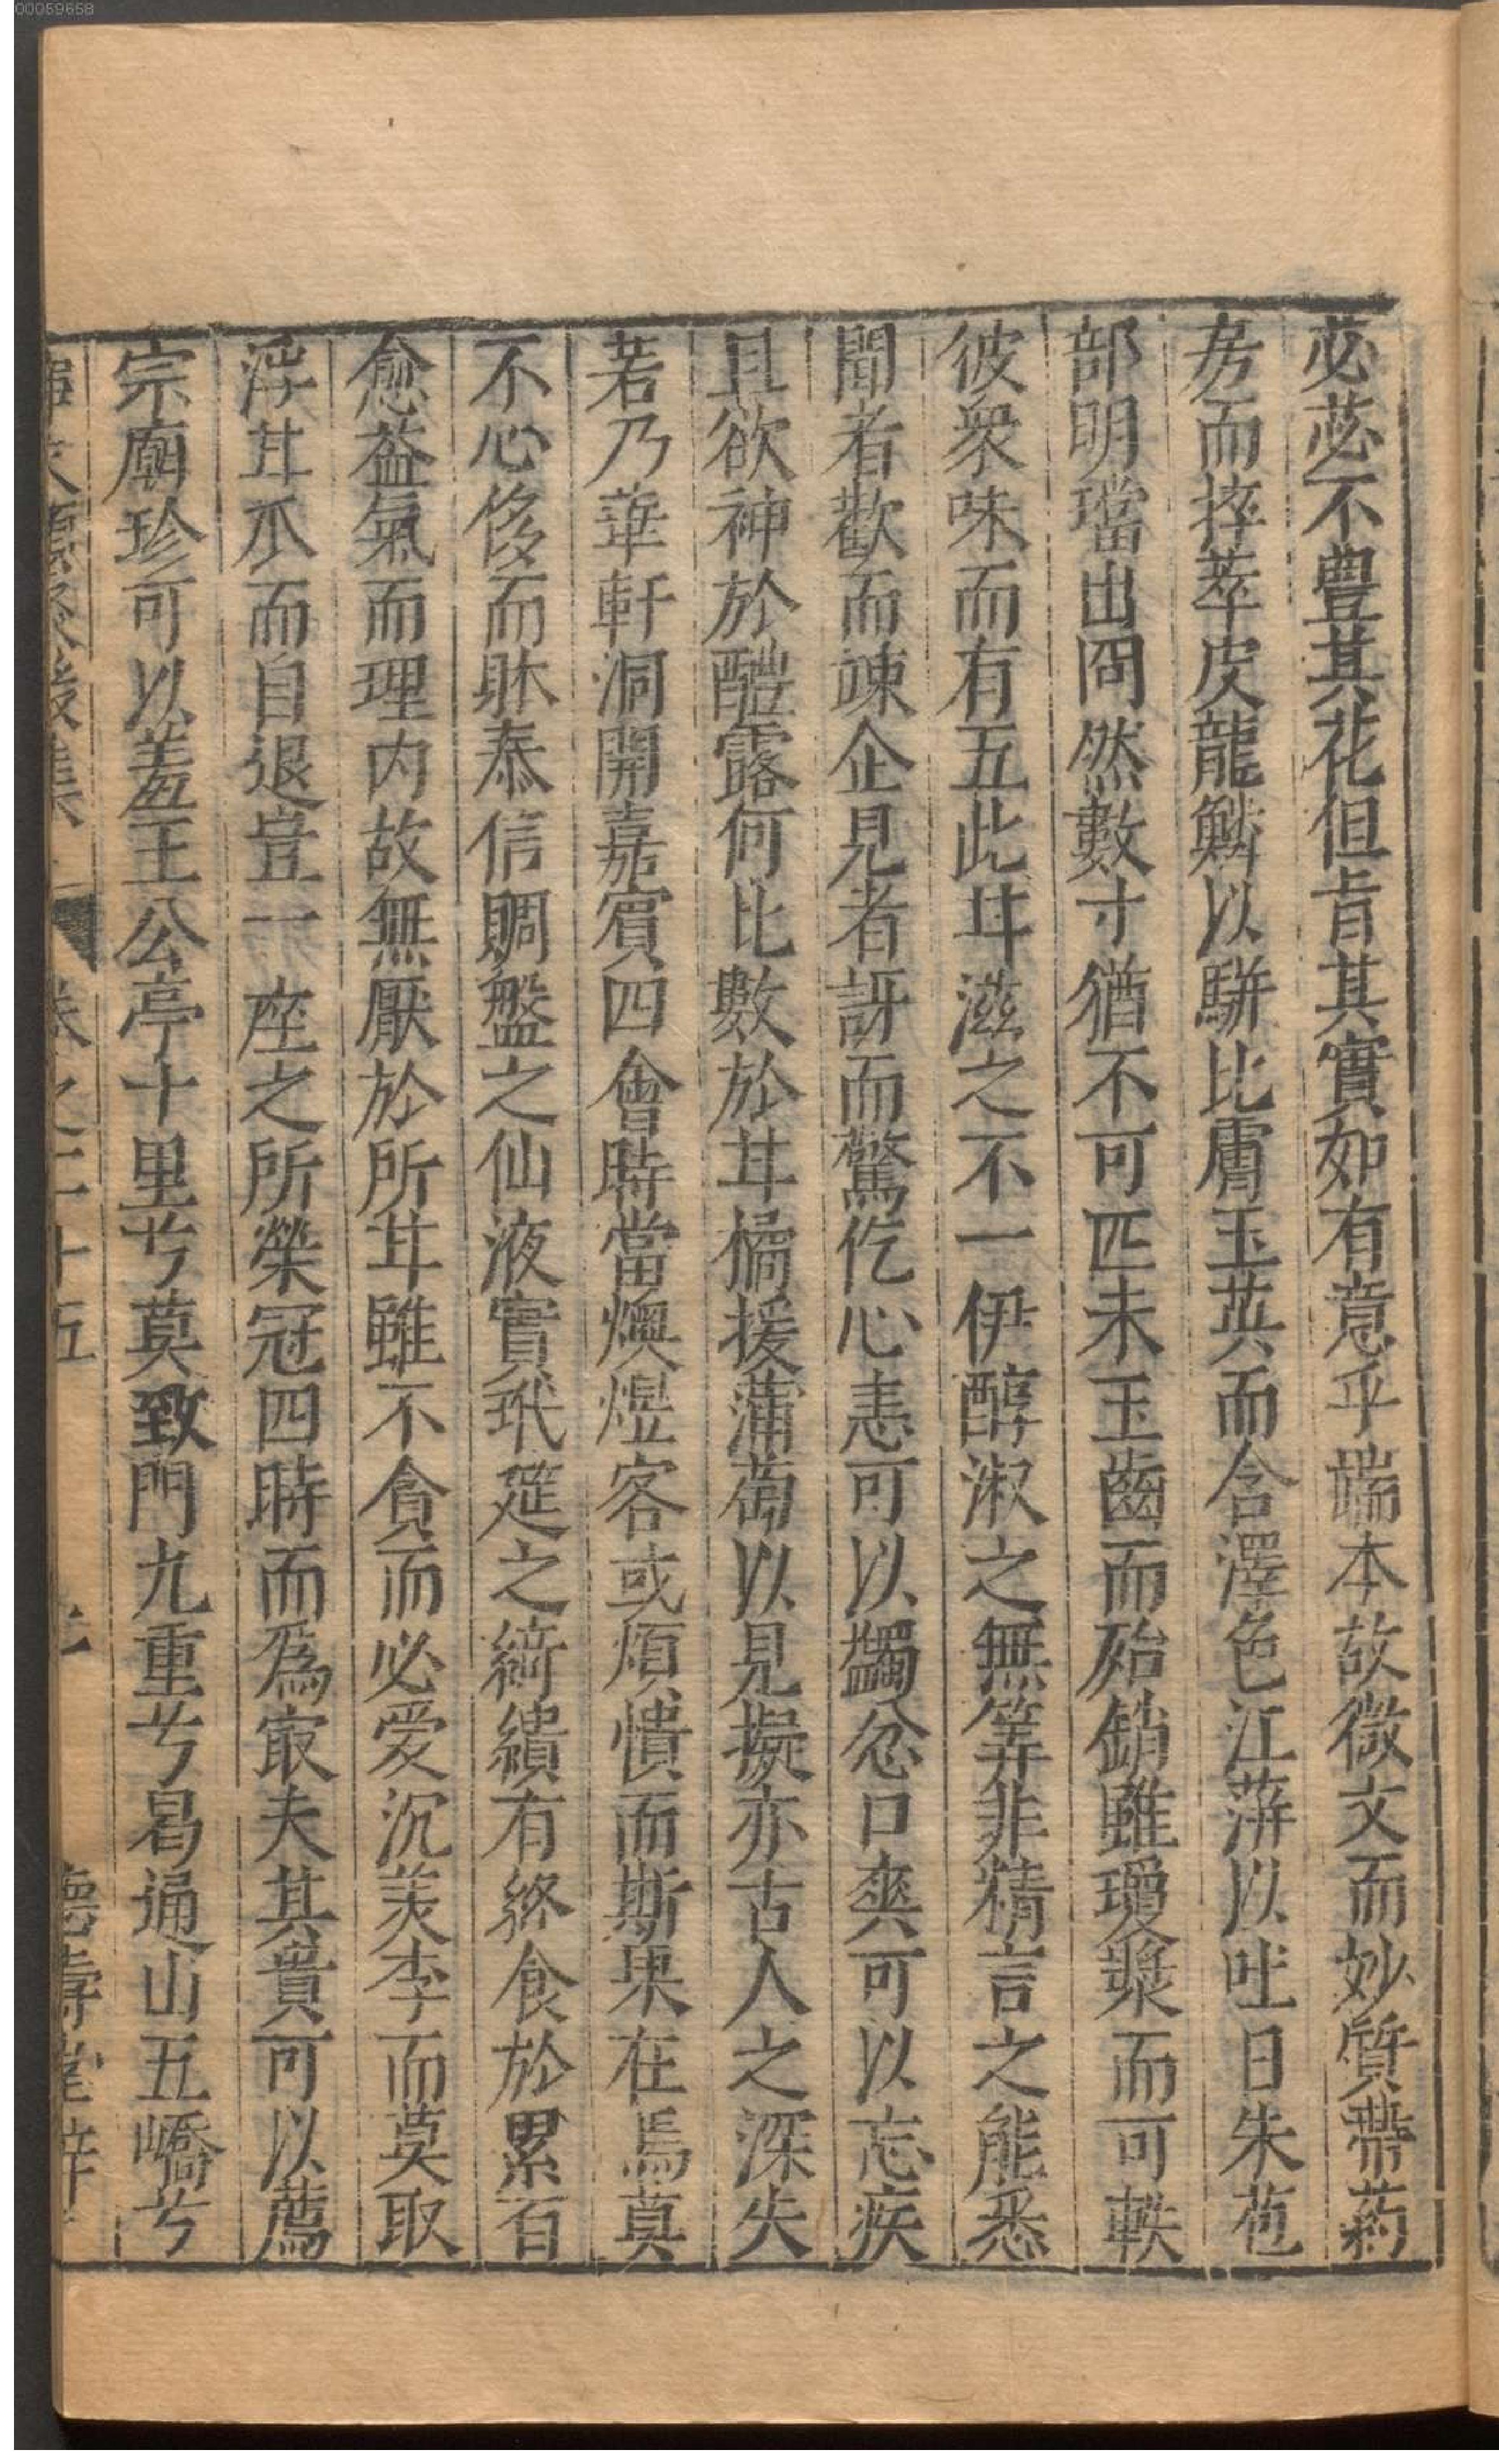 00059658
苾苾不豊其花但肯其實如有意乎端本故微文而妙質帶葯
房而捽萃皮龍鱗以駢比膚玉英而含澤色江蓱以吐日朱苞
部明璫出冏然數寸猶不可匹未玉齒而殆銷雖瓊漿而可軼
彼衆味而有五此甘滋之不一伊醇淑之無筭非精言之能悉
聞者歡而竦企見者訝而驚仡心恚可以蠲忿口爽可以忘疾
且欲神於醴露何比數於甘橘援蒲萄以見擬亦古人之深失
若乃華軒洞開嘉賓四會時當燠煜客或煩憒而斯果在焉莫
不心侈而躰泰信雕盤之仙液實玳筵之綺繢有終食於累百
愈益氣而理内故無厭於所甘雖不貪而必爱沉美李而莫取
浮甘瓜而自退豈一座之所榮冠四時而爲㝡夫其貴可以薦
宗廟珍可以羞王公亭十里兮莫致門九重兮曷通山五嶠兮
卷之二十五 德壽堂梓